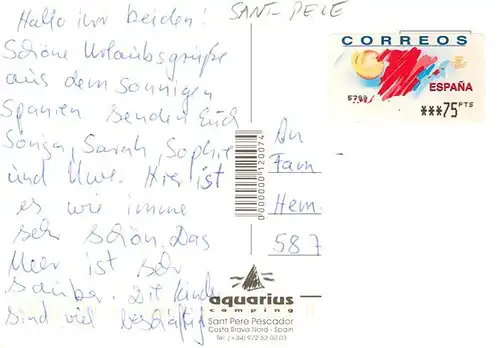 Hallo ihr beiden!
Schöne Urlaubsgrüße
aus dem sonnigen
Spanien senden Euch
Sonja, Sarah, Sophie
und Uwe. Hier ist
es wie immer
sehr schön. Das
Meer ist sehr
sauber. Die Kinder
sind viel beschäftig
SANT-PERE
CORREOS
ESPAÑA
***75 PTS
An
Fam
Hem
587
0000000 120074
aquarius
camping
Sant Pere Pescador
Costa Brava Nord - Spain
Tel. (+34) 972 52 00 03